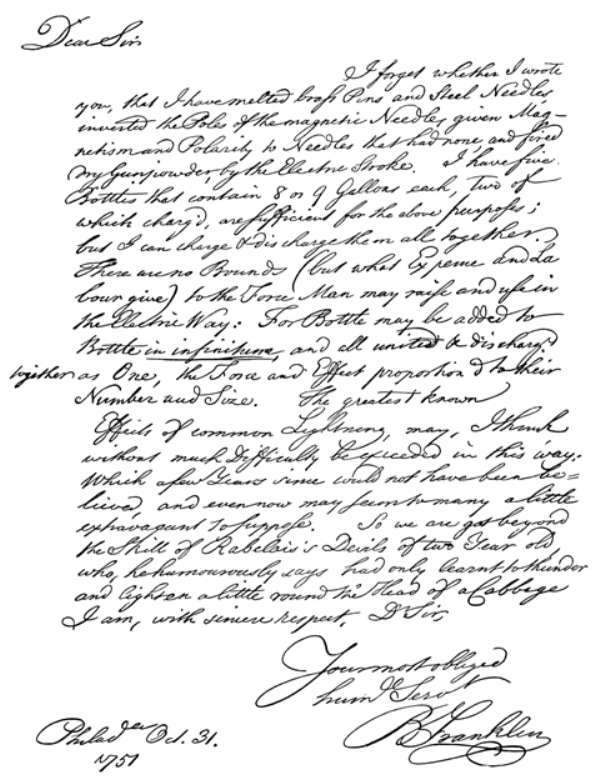 Dear Sir
I forget whether I wrote
you, that I have melted brass Pins and Steel Needles,
inverted the Poles of the magnetic Needle, given Mag-
netism and Polarity to Needles that had none and fired
dry Gunpowder, by the Electric Stroke. I have five
Bottles that contain 8 or 9 Gallons each, Two of
which charg'd, are sufficient for the above purposes;
but I can charge & discharge them all together.
There are no Bounds (but what Expence and La
bour give) to the Force Man may raise and use in
the Electric Way: For Bottle may be added to
Bottle in infinitum, and all united & discharg'd
together as One, the Force and Effect proportion'd to their
Number and Size. The greatest known
Effects of common Lightning, may, I think
without much Difficulty be exceeded in this way:
Which a few Years since could not have been be=
lieved, and even now may seem to many a little
extravagant to suppose. So we are got beyond
the Skill of Rabelais's Devils of two Year old,
who, he humourously says had only learnt to thunder
and lighten a little round the Head of a Cabbage
I am, with sincere respect, Dr Sir,
Your most obliged
humle Servt
B Franklin
Philada Oct. 31.
1751